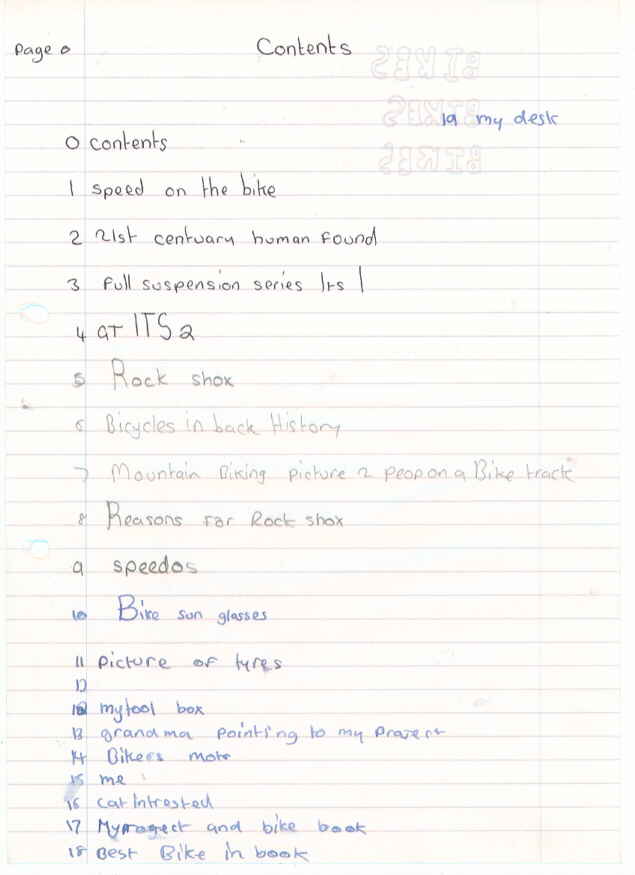 Page 0 Contents
BIKES
BIKES
19 my desk
BIKES
0 contents
1 speed on the bike
2 21st centuary human found
3 Full suspension series lrs 1
4 GT ITS 2
5 Rock shox
6 Bicycles in back History
7 Mountain Biking picture 2 peop on a Bike track
8 Reasons for Rock shox
9 speedos
10 Bike sun glasses
11 picture of tyres
12
12 my tool box
13 grandma pointing to my
14 Bikers
15 me
16 cat Intrested
17 My and bike book
18 Best Bike in book